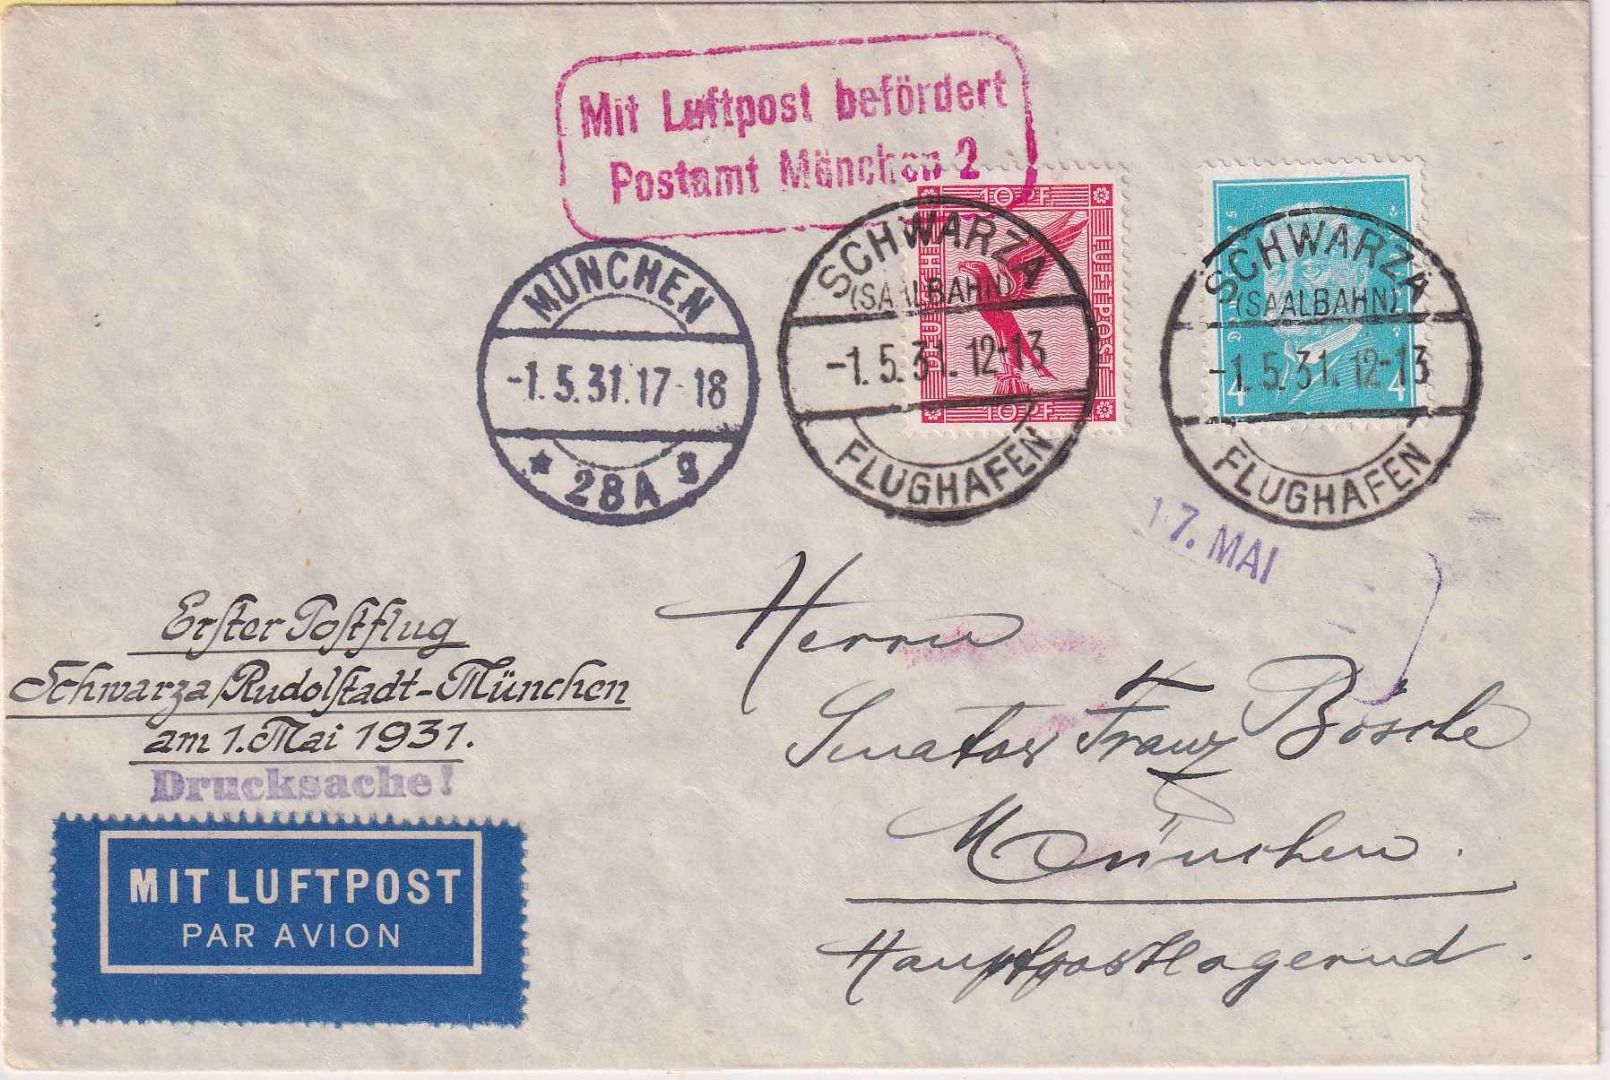 Mit Luftpost befördert
Postamt München 2
MÜNCHEN
-1.5.31.17-18
* 28A g
10 PF.
DEUTSCHE LUFTPOST
10 PF.
SCHWARZA
(SAALBAHN)
-1.5.31.12-13
FLUGHAFEN
4 4
SCHWARZA
(SAALBAHN)
-1.5.31.12-13
FLUGHAFEN
17. MAI
Erster Postflug
Schwarza/Rudolstadt-München
am 1. Mai 1931.
Drucksache!
MIT LUFTPOST
PAR AVION
Herrn
Senator Franz Bösche
München.
Hauptpostlagernd.